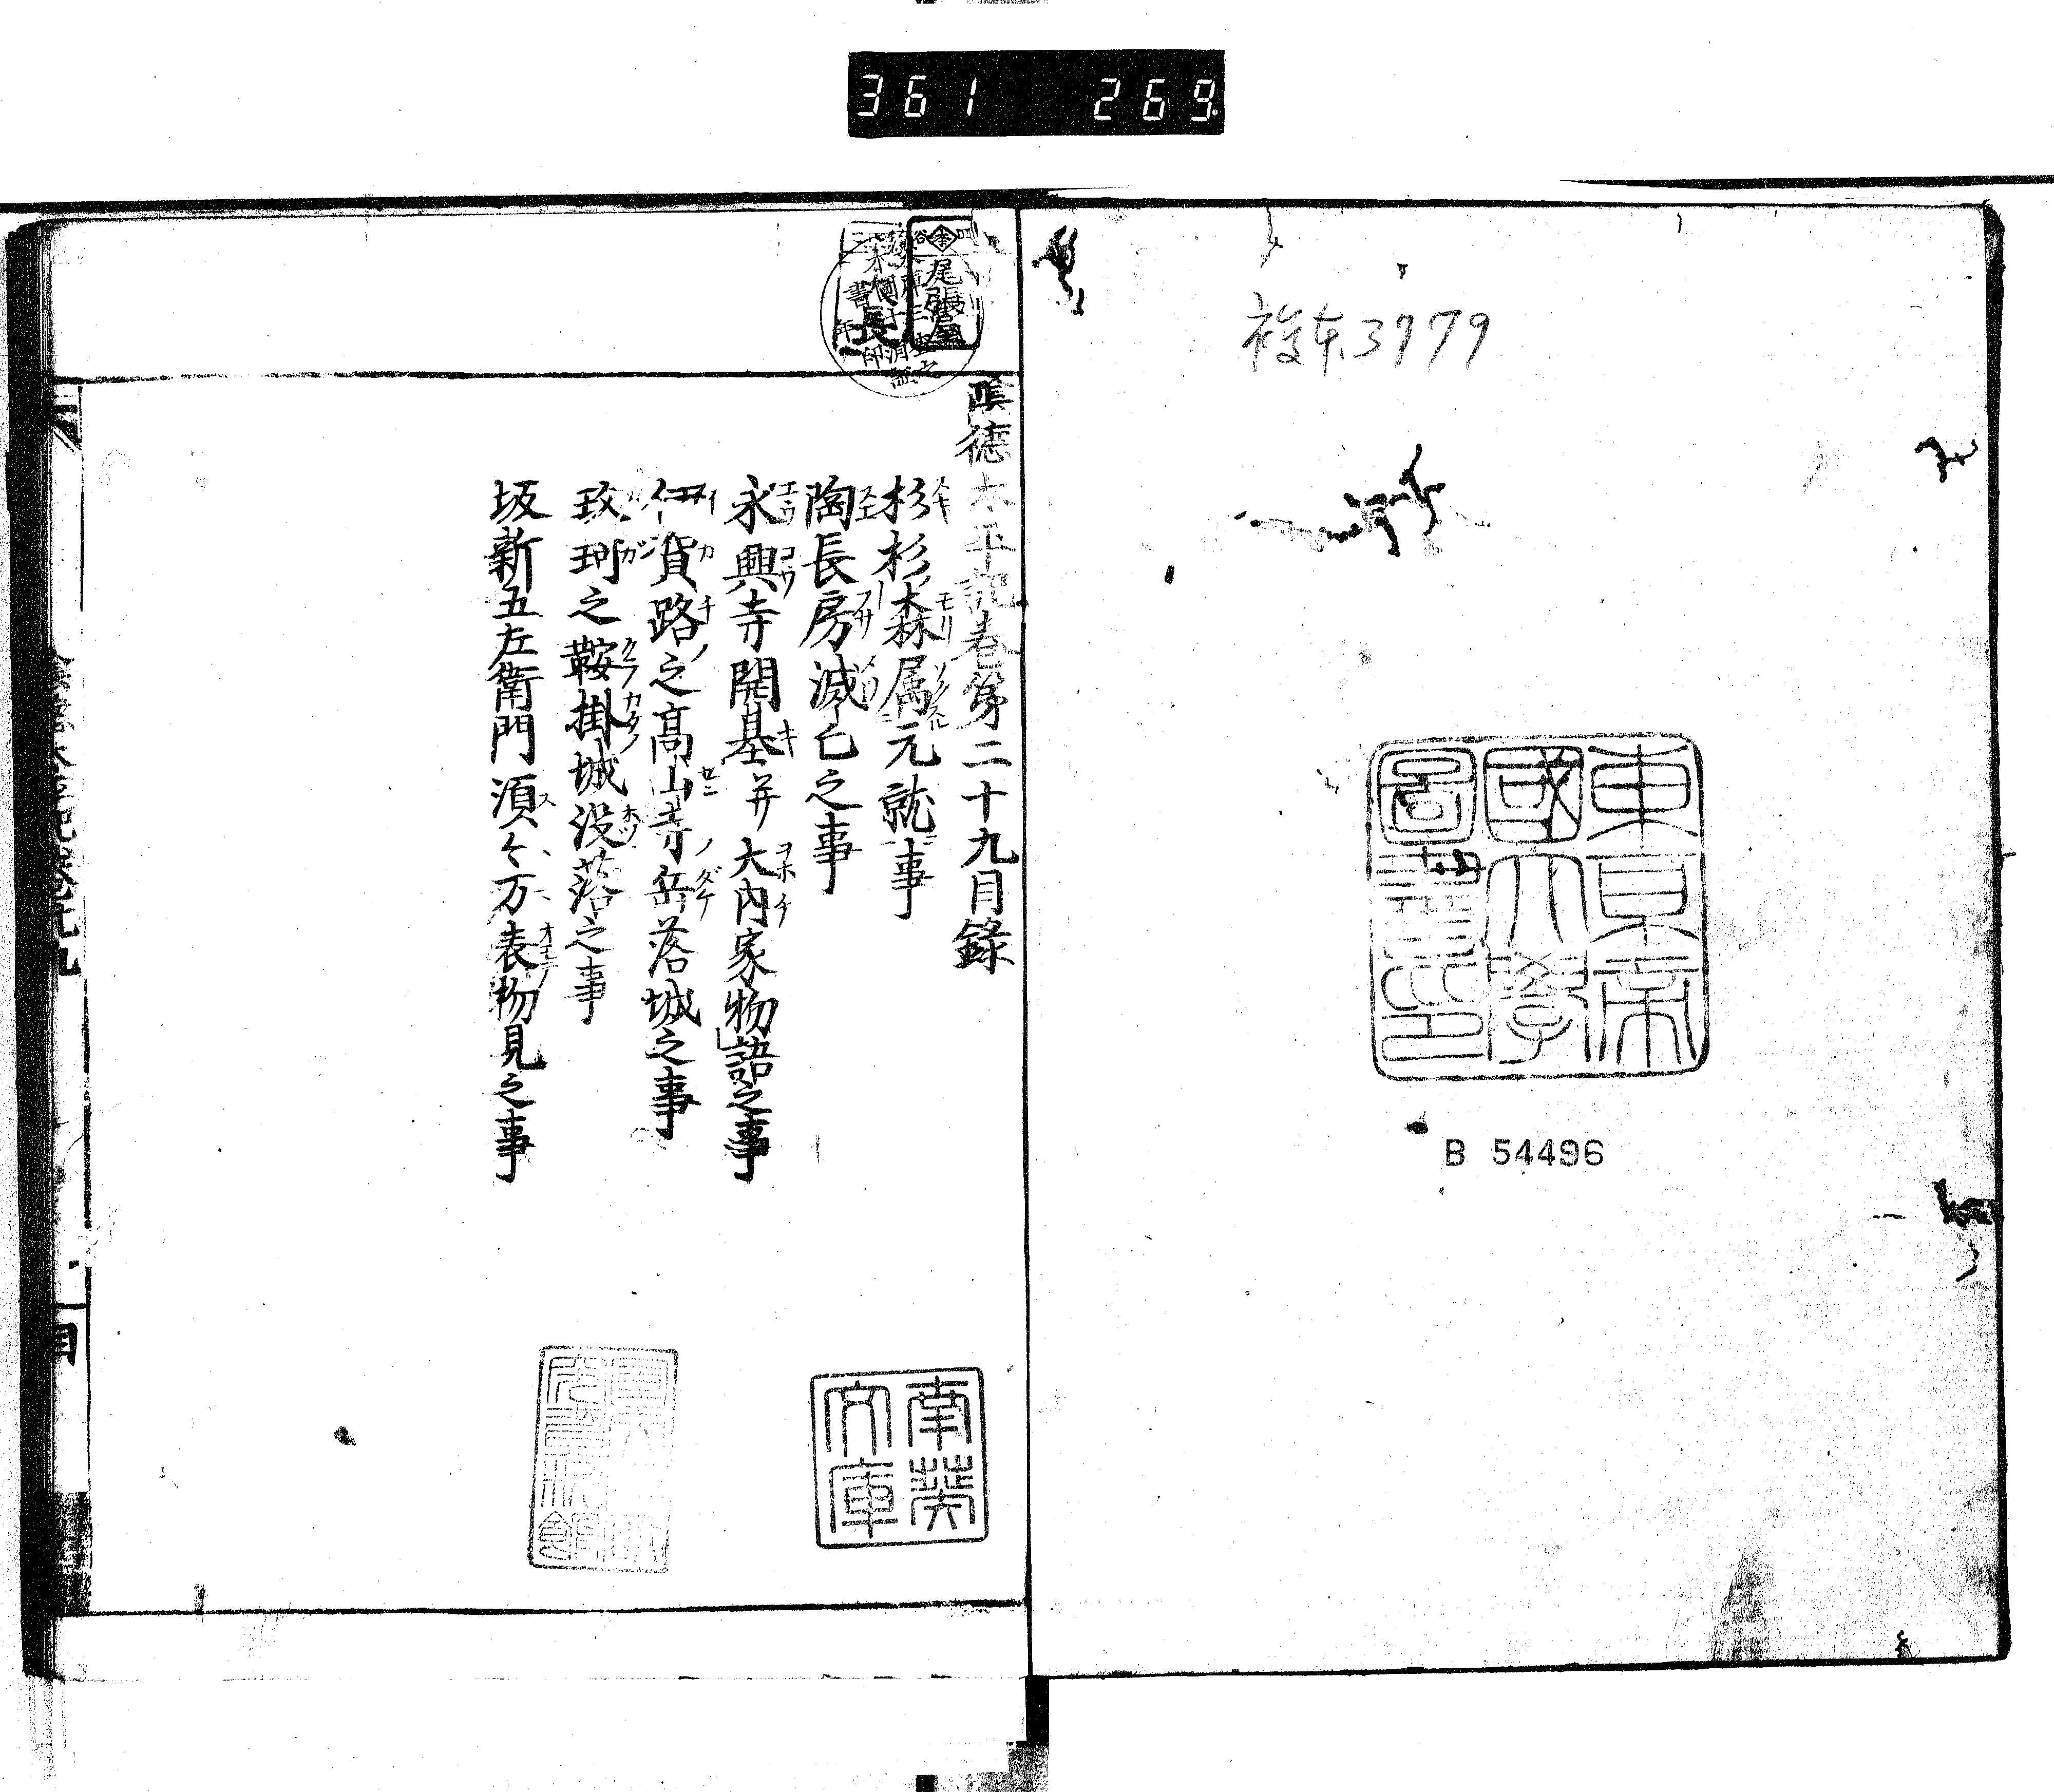 361 269
複本3779
東京帝
國大學
圖書印
B 54496
陰德太平記卷第二十九目錄
杉杉森属元就事
陶長房滅亡之事
永興寺開基并大内家物語之事
伊賀路之高山寺岳落城之事
玖珂之鞍掛城没落之事
坂新五左衛門須々万表物見之事
尾張
長
南葵
文庫
目